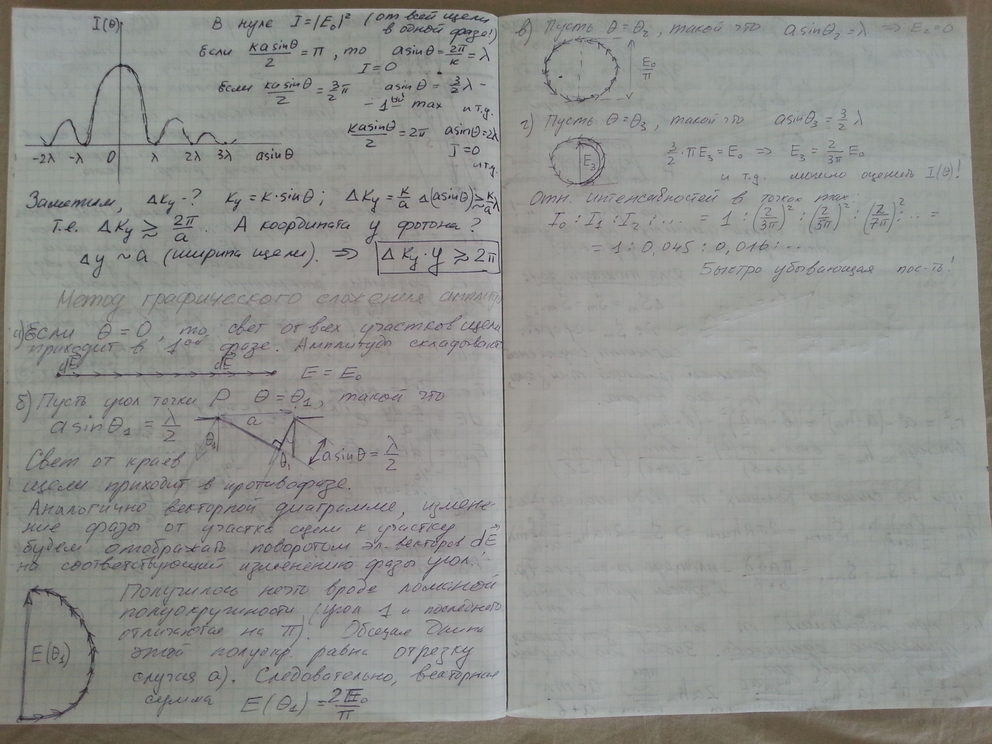 I(θ)
В нуле I=|E₀|² (от всей щели в одной фазе!)
Если kasinθ/2 = π, то asinθ = 2π/k = λ
I=0
Если kasinθ/2 = 3/2 π asinθ = 3/2 λ -
- 1ый max и т.д.
kasinθ/2 = 2π asinθ = 2λ
I=0
и т.д.
-2λ -λ 0 λ 2λ 3λ asinθ
Заметим, Δky -? ky = k·sinθ; Δky = k/a Δ(asinθ) ≳ k/a λ
Т.е. Δky ≳ 2π/a. А координата y фотона?
Δy ~ a (ширина щели). ⇒ Δky·y ≳ 2π
Метод графического сложения амплитуд
а) Если θ = 0, то свет от всех участков щели
приходит в 1ой фазе. Амплитуды складывают
dE dE E = E₀
б) Пусть угол точки P θ = θ₁, такой что
asinθ₁ = λ/2
a
θ₁ θ₁ asinθ = λ/2
Свет от краев
щели приходит в противофазе.
Аналогично векторной диаграмме, измене-
ние фазы от участка щели к участку
будем отображать поворотом эл-векторов dE
на соответствующий изменению фазы угол!
Получилось нечто вроде ломанной
полуокружности (угол 1 и последнего
отличются на π). Общая длина
этой полуокр. равна отрезку
случая а). Следовательно, векторная
сумма E(θ₁) = 2E₀/π
E(θ₁)
в) Пусть θ=θ₂, такой что asinθ₂ = λ ⇒ E₂=0
E₀/π
г) Пусть θ=θ₃, такой что asinθ₃ = 3/2 λ
E₃
3/2 · πE₃ = E₀ ⇒ E₃ = 2/3π E₀
и т.д. можно оценить I(θ)!
Отн. интенсивностей в точках max
I₀ : I₁ : I₂ : ... = 1 : (2/3π)² : (2/5π)² : (2/7π)² : ... =
= 1 : 0,045 : 0,016 : ...
Быстро убывающая пос-ть!